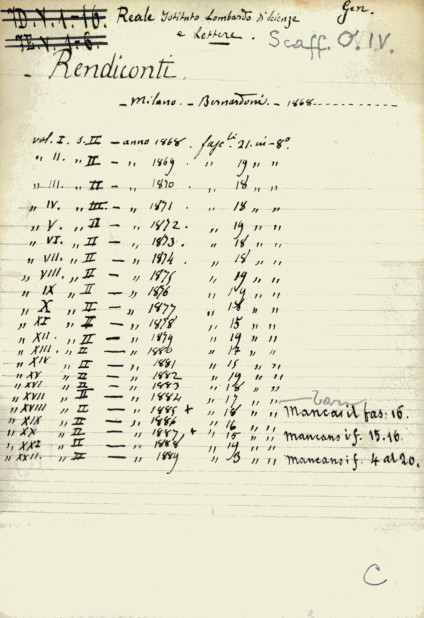 ID. V. 1-16. Reale Istituto Lombardo di Scienze Gen.
IE. V. 1-8. e Lettere. Scaff. O. IV.
Rendiconti.
Milano. - Bernardoni. - 1868
vol. I. s. II — anno 1868. fasc.li 21. in-8º.
" II. " II — " 1869 " 19 " "
" III. " II — " 1870 " 18 " "
" IV. " III. — " 1871 " 18 " "
" V. " II — " 1872. " 19 " "
" VI. " II — " 1873. " 18 " "
" VII. " II — " 1874. " 18 " "
" VIII. " II — " 1875 " 19 " "
" IX " II — " 1876 " 19 " "
" X " II — " 1877 " 18 " "
" XI " II — " 1878 " 15 " "
" XII. " II — " 1879 " 19 " "
" XIII. " II — " 1880 " 17 " "
" XIV " II — " 1881 " 15 " "
" XV " II — " 1882 " 19 " "
" XVI " II — " 1883 " 18 " "
" XVII " II — " 1884 " 17 " "
" XVIII " II — " 1885 + " 18 " " Manca il fas: 16.
" XIX " II — " 1886 " 16 " "
" XX " II — " 1887 + " 15 " " Mancano i f. 15.16.
" XXI " II — " 1888 " 19 " "
" XXII. " II — " 1889 " 3 " " Mancano i f. 4 al 20.
C